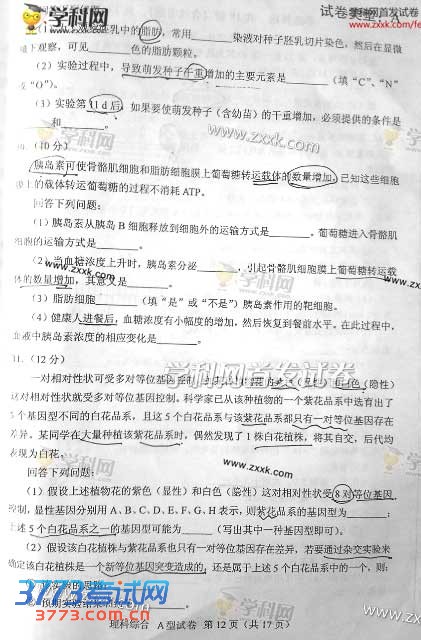 学科网
WWW.ZXXK.COM
试卷类型：A
学科网首发试卷
www.zxxk.com/fe
胚乳中的脂肪，常用______染液对种子胚乳切片染色，然后在显微
镜下观察，可见______色的脂肪颗粒。
(2) 实验过程中，导致萌发种子干重增加的主要元素是______（填“C”、“N”
或“O”）。
(3) 实验第11 d后，如果要使萌发种子（含幼苗）的干重增加，必须提供的条件是
______和______。
学科网
www.zxxk.com
(10分)
胰岛素可使骨骼肌细胞和脂肪细胞膜上葡萄糖转运载体的数量增加，已知这些细胞
膜上的载体转运葡萄糖的过程不消耗ATP。
回答下列问题：
(1) 胰岛素从胰岛B细胞释放到细胞外的运输方式是______。葡萄糖进入骨骼肌
细胞的运输方式是______。
(2) 当血糖浓度上升时，胰岛素分泌______，引起骨骼肌细胞膜上葡萄糖转运载
体的数量增加，其意义是______。
www.zxxk.com
(3) 脂肪细胞______（填“是”或“不是”）胰岛素作用的靶细胞。
(4) 健康人进餐后，血糖浓度有小幅度的增加，然后恢复到餐前水平。在此过程中，
血液中胰岛素浓度的相应变化是______。
31. (12分)
学科网首发试卷
www.zxxk.com
一对相对性状可受多对等位基因控制，（显性）和白色（隐性）
这对相对性状就受多对等位基因控制。科学家已从该种植物的一个紫花品系中选育出了
5个基因型不同的白花品系，且这5个白花品系与该紫花品系都只有一对等位基因存在
差异。某同学在大量种植该紫花品系时，偶然发现了1株白花植株，将其自交，后代均
表现为白花。
回答下列问题：
www.zxxk.com
(1) 假设上述植物花的紫色（显性）和白色（隐性）这对相对性状受8对等位基因
控制，显性基因分别用A、B、C、D、E、F、G、H表示，则紫花品系的基因型为______；
上述5个白花品系之一的基因型可能为______（写出其中一种基因型即可）。
(2) 假设该白花植株与紫花品系也只有一对等位基因存在差异，若要通过杂交实验来
确定该白花植株是一个新等位基因突变造成的，还是属于上述5个白花品系中的一个，则：
该实验的思路：
② 预期实验结果和结论
3773考试网
www.3773.com.cn
理科综合 A型试卷 第12页（共17页）